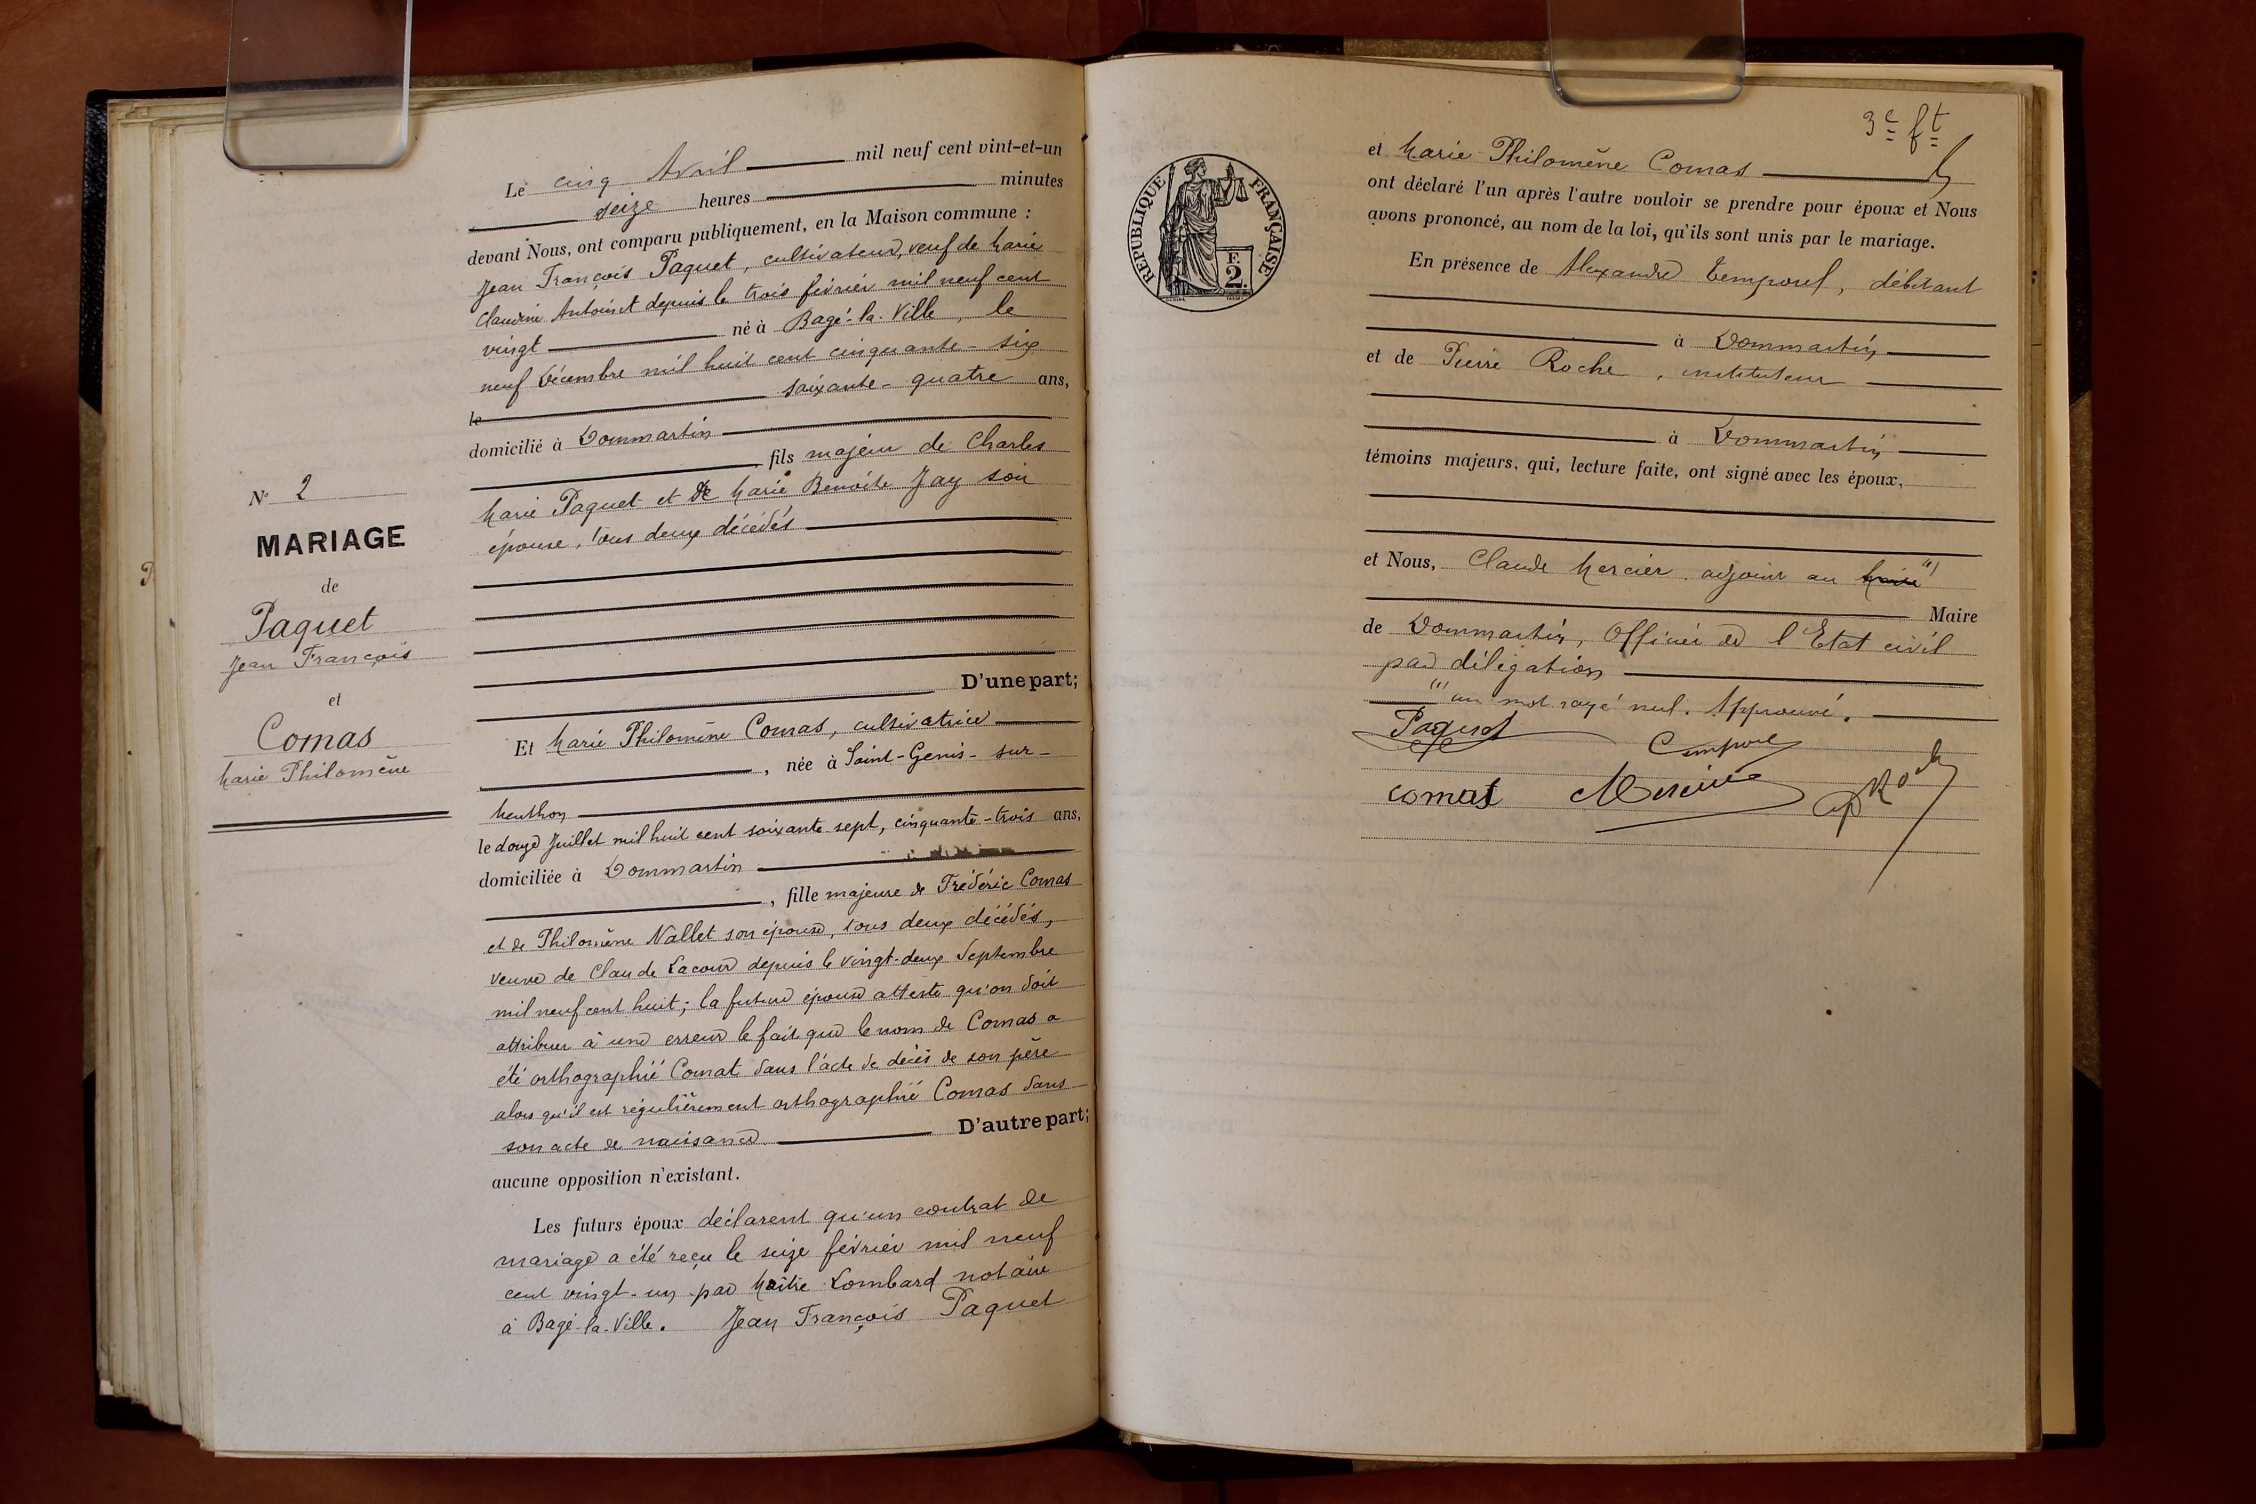 N° 2
MARIAGE
de
Paquet
Jean François
et
Comas
Marie Philomène
Le cinq Avril mil neuf cent vint-et-un
seize heures minutes
devant Nous, ont comparu publiquement, en la Maison commune :
Jean François Paquet, cultivateur, veuf de Marie
Claudine Antoinet depuis le trois février mil neuf cent
vingt né à Bagé-la-Ville, le
neuf Décembre mil huit cent cinquante-six
le soixante-quatre ans,
domicilié à Dommartin
fils majeur de Charles
Marie Paquet et de Marie Benoite Jay son
épouse, tous deux décédés
D'une part;
Et Marie Philomène Comas, cultivatrice
, née à Saint-Genis-sur-
Menthon
le douze Juillet mil huit cent soixante sept, cinquante-trois ans,
domiciliée à Dommartin
, fille majeure de Frédéric Comas
et de Philomène Nallet son épouse, tous deux décédés,
veuve de Claude Lacour depuis le vingt-deux Septembre
mil neuf cent huit; la future épouse atteste qu'on doit
attribuer à une erreur le fait que le nom de Comas a
été orthographié Comat dans l'acte de décès de son père
alors qu'il est régulièrement orthographié Comas dans
son acte de naissance D'autre part;
aucune opposition n'existant.
Les futurs époux déclarent qu'un contrat de
mariage a été reçu le seize février mil neuf
cent vingt-un par Maître Lombard notaire
à Bagé-la-Ville. Jean François Paquet
3e ft
RÉPUBLIQUE FRANÇAISE
F.
2.
et Marie Philomène Comas
ont déclaré l'un après l'autre vouloir se prendre pour époux et Nous
avons prononcé, au nom de la loi, qu'ils sont unis par le mariage.
En présence de Alexandre Temporel, débitant
à Dommartin
et de Pierre Roche, instituteur
à Dommartin
témoins majeurs, qui, lecture faite, ont signé avec les époux,
et Nous, Claude Mercier adjoint au Maire (1)
Maire
de Dommartin, Officier de l'Etat civil
par délégation
(1) un mot rayé nul. Approuvé.
Paquet
comas Mercier P Roche